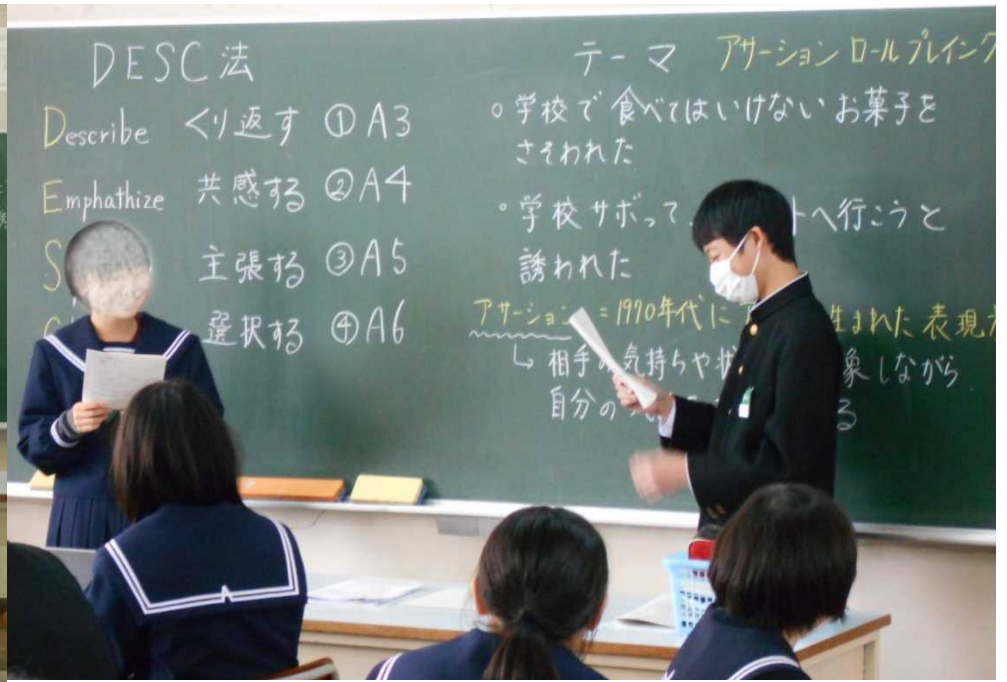 DESC法
Describe くり返す ①A3
Emphathize 共感する ②A4
S 主張する ③A5
選択する ④A6
テーマ アサーションロールプレイング
○学校で食べてはいけないお菓子を
さそわれた
○学校サボって、 トへ行こうと
誘われた
アサーション=1970年代に 生まれた表現
↳相手の気持ちや状 象しながら
自分の る